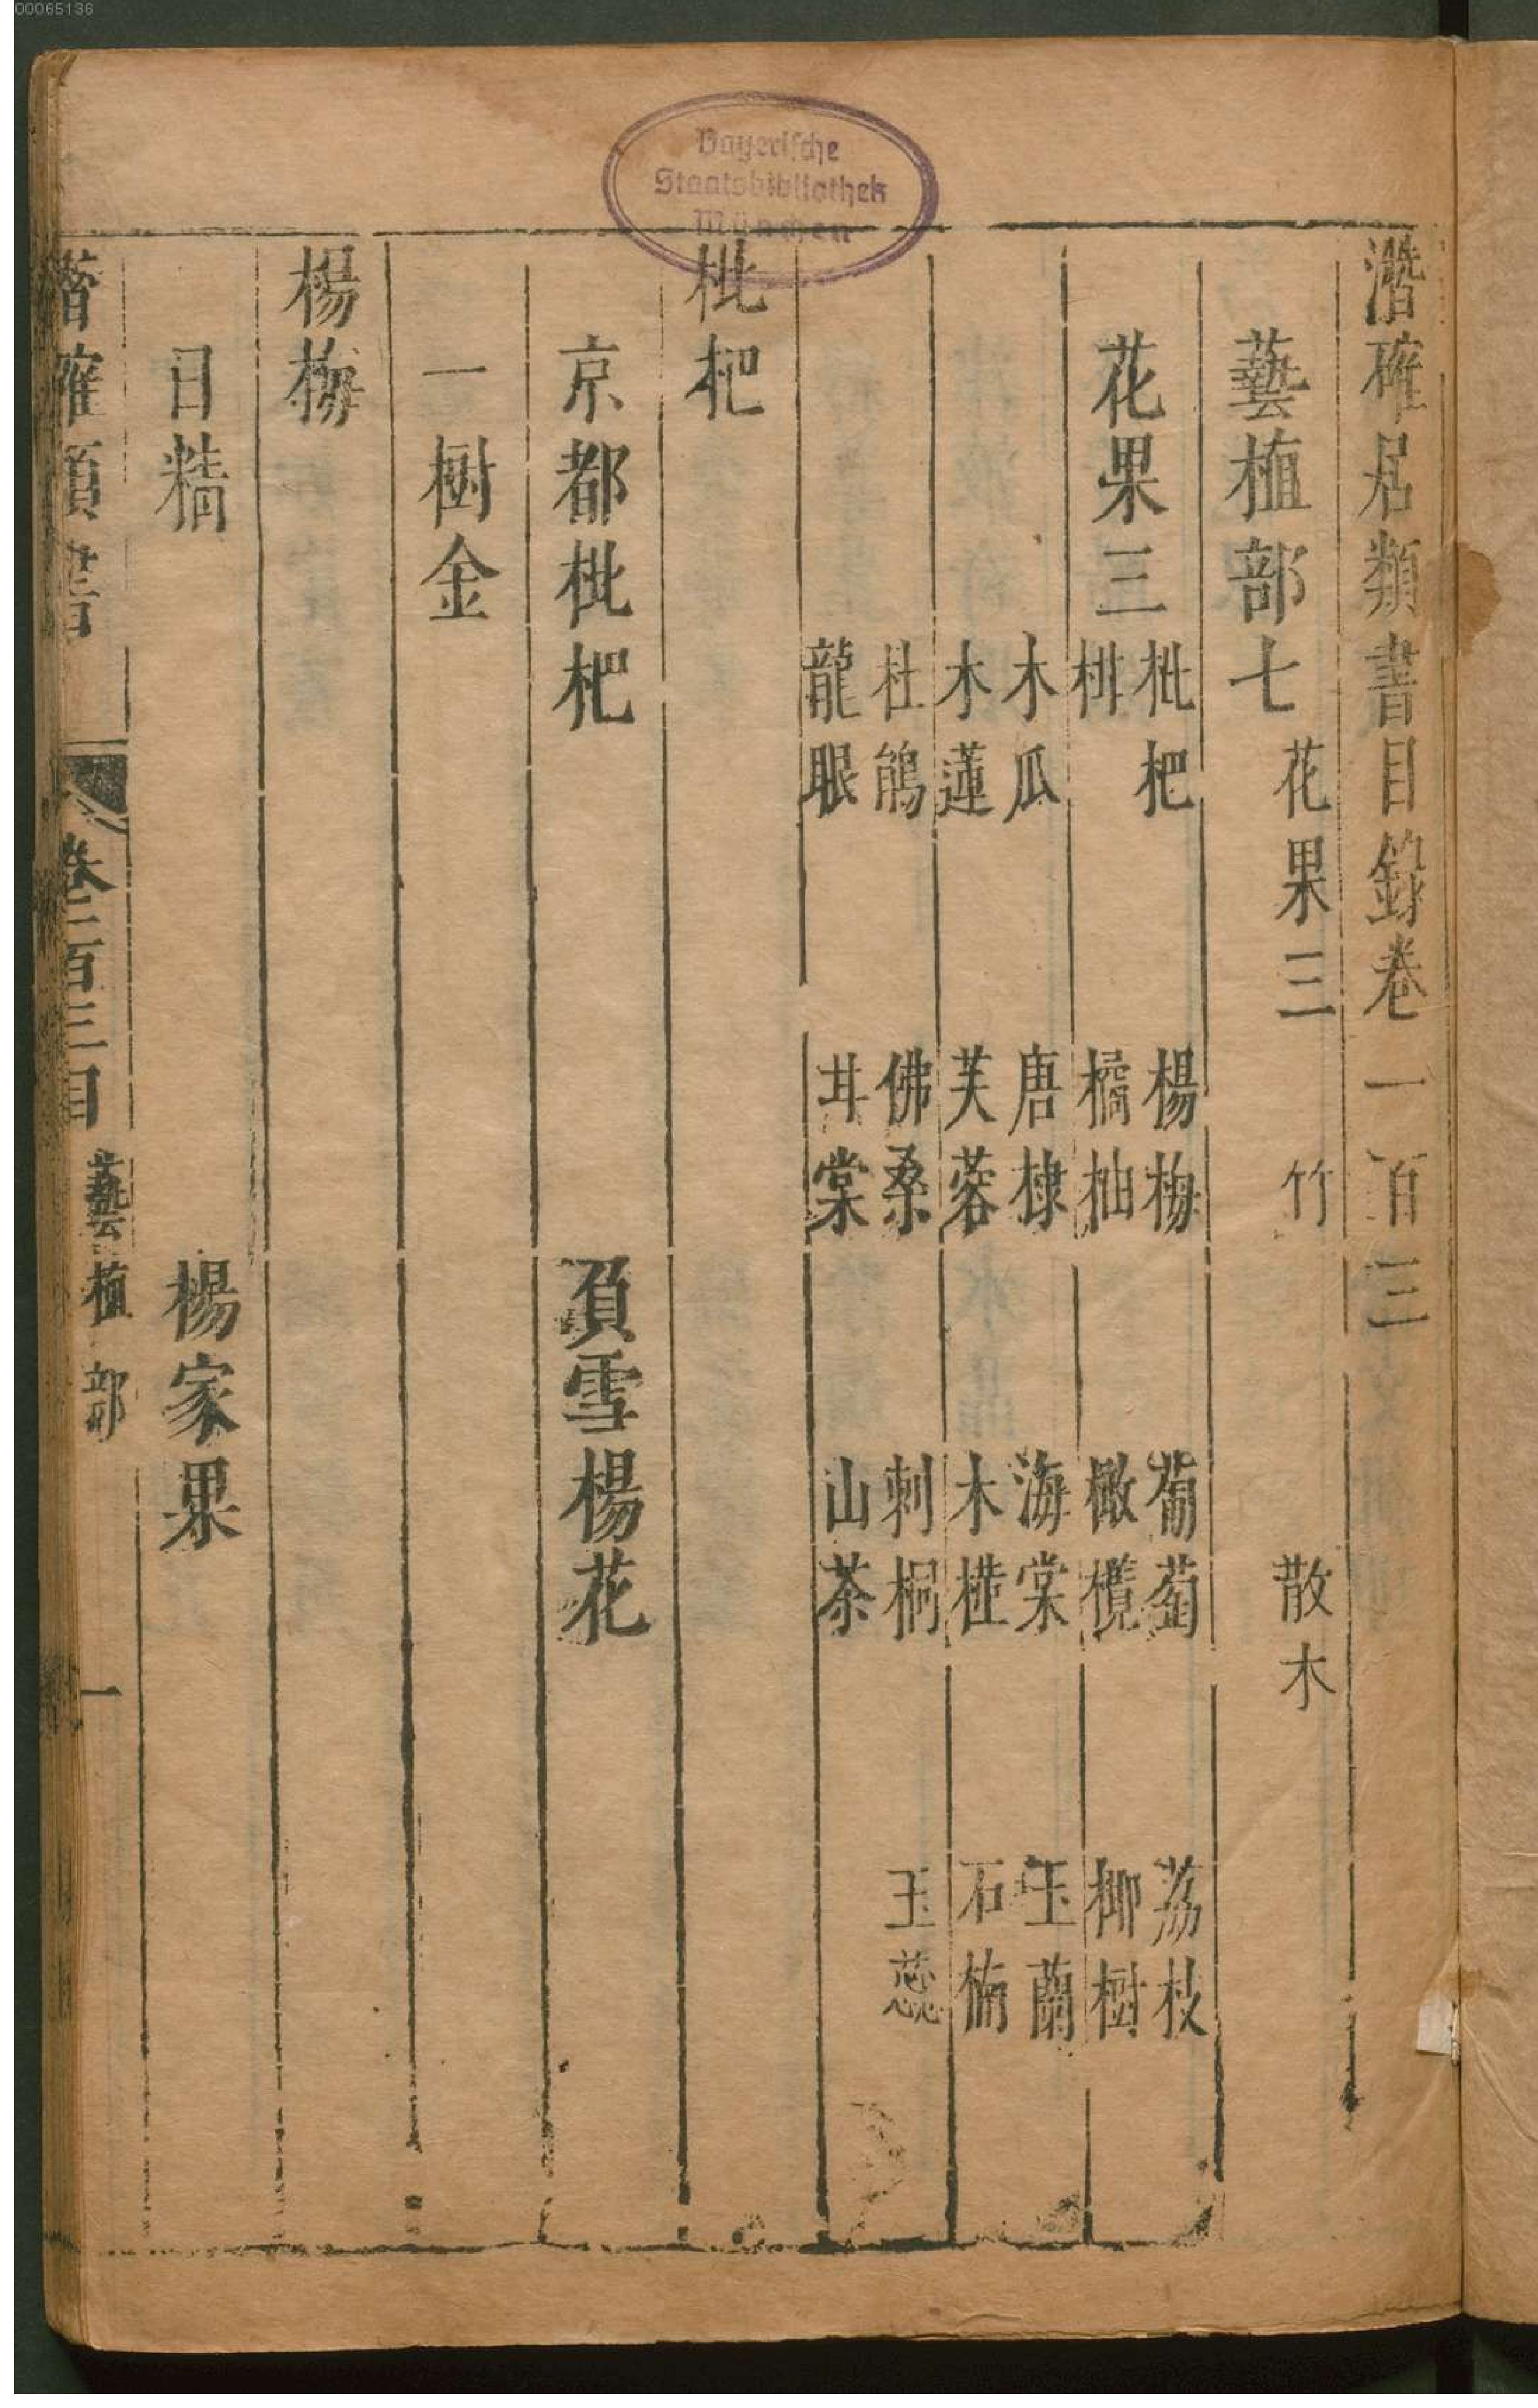 00065136
Bayerische
Staatsbibliothek
München
潛確居類書目錄卷一百三
藝植部七 花果三 竹 散木
花果三 枇杷 楊梅 葡萄 荔枝
橘柚 橄欖 椰樹
木瓜 唐棣 海棠 玉蘭
木蓮 芙蓉 木槿 石楠
杜鵑 佛桑 刺桐 玉蕊
龍眼 甘棠 山茶
枇杷
京都枇杷 負雪楊花
一樹金
楊梅
日精 楊家果
潛確類書 卷一百三目 藝植部 一